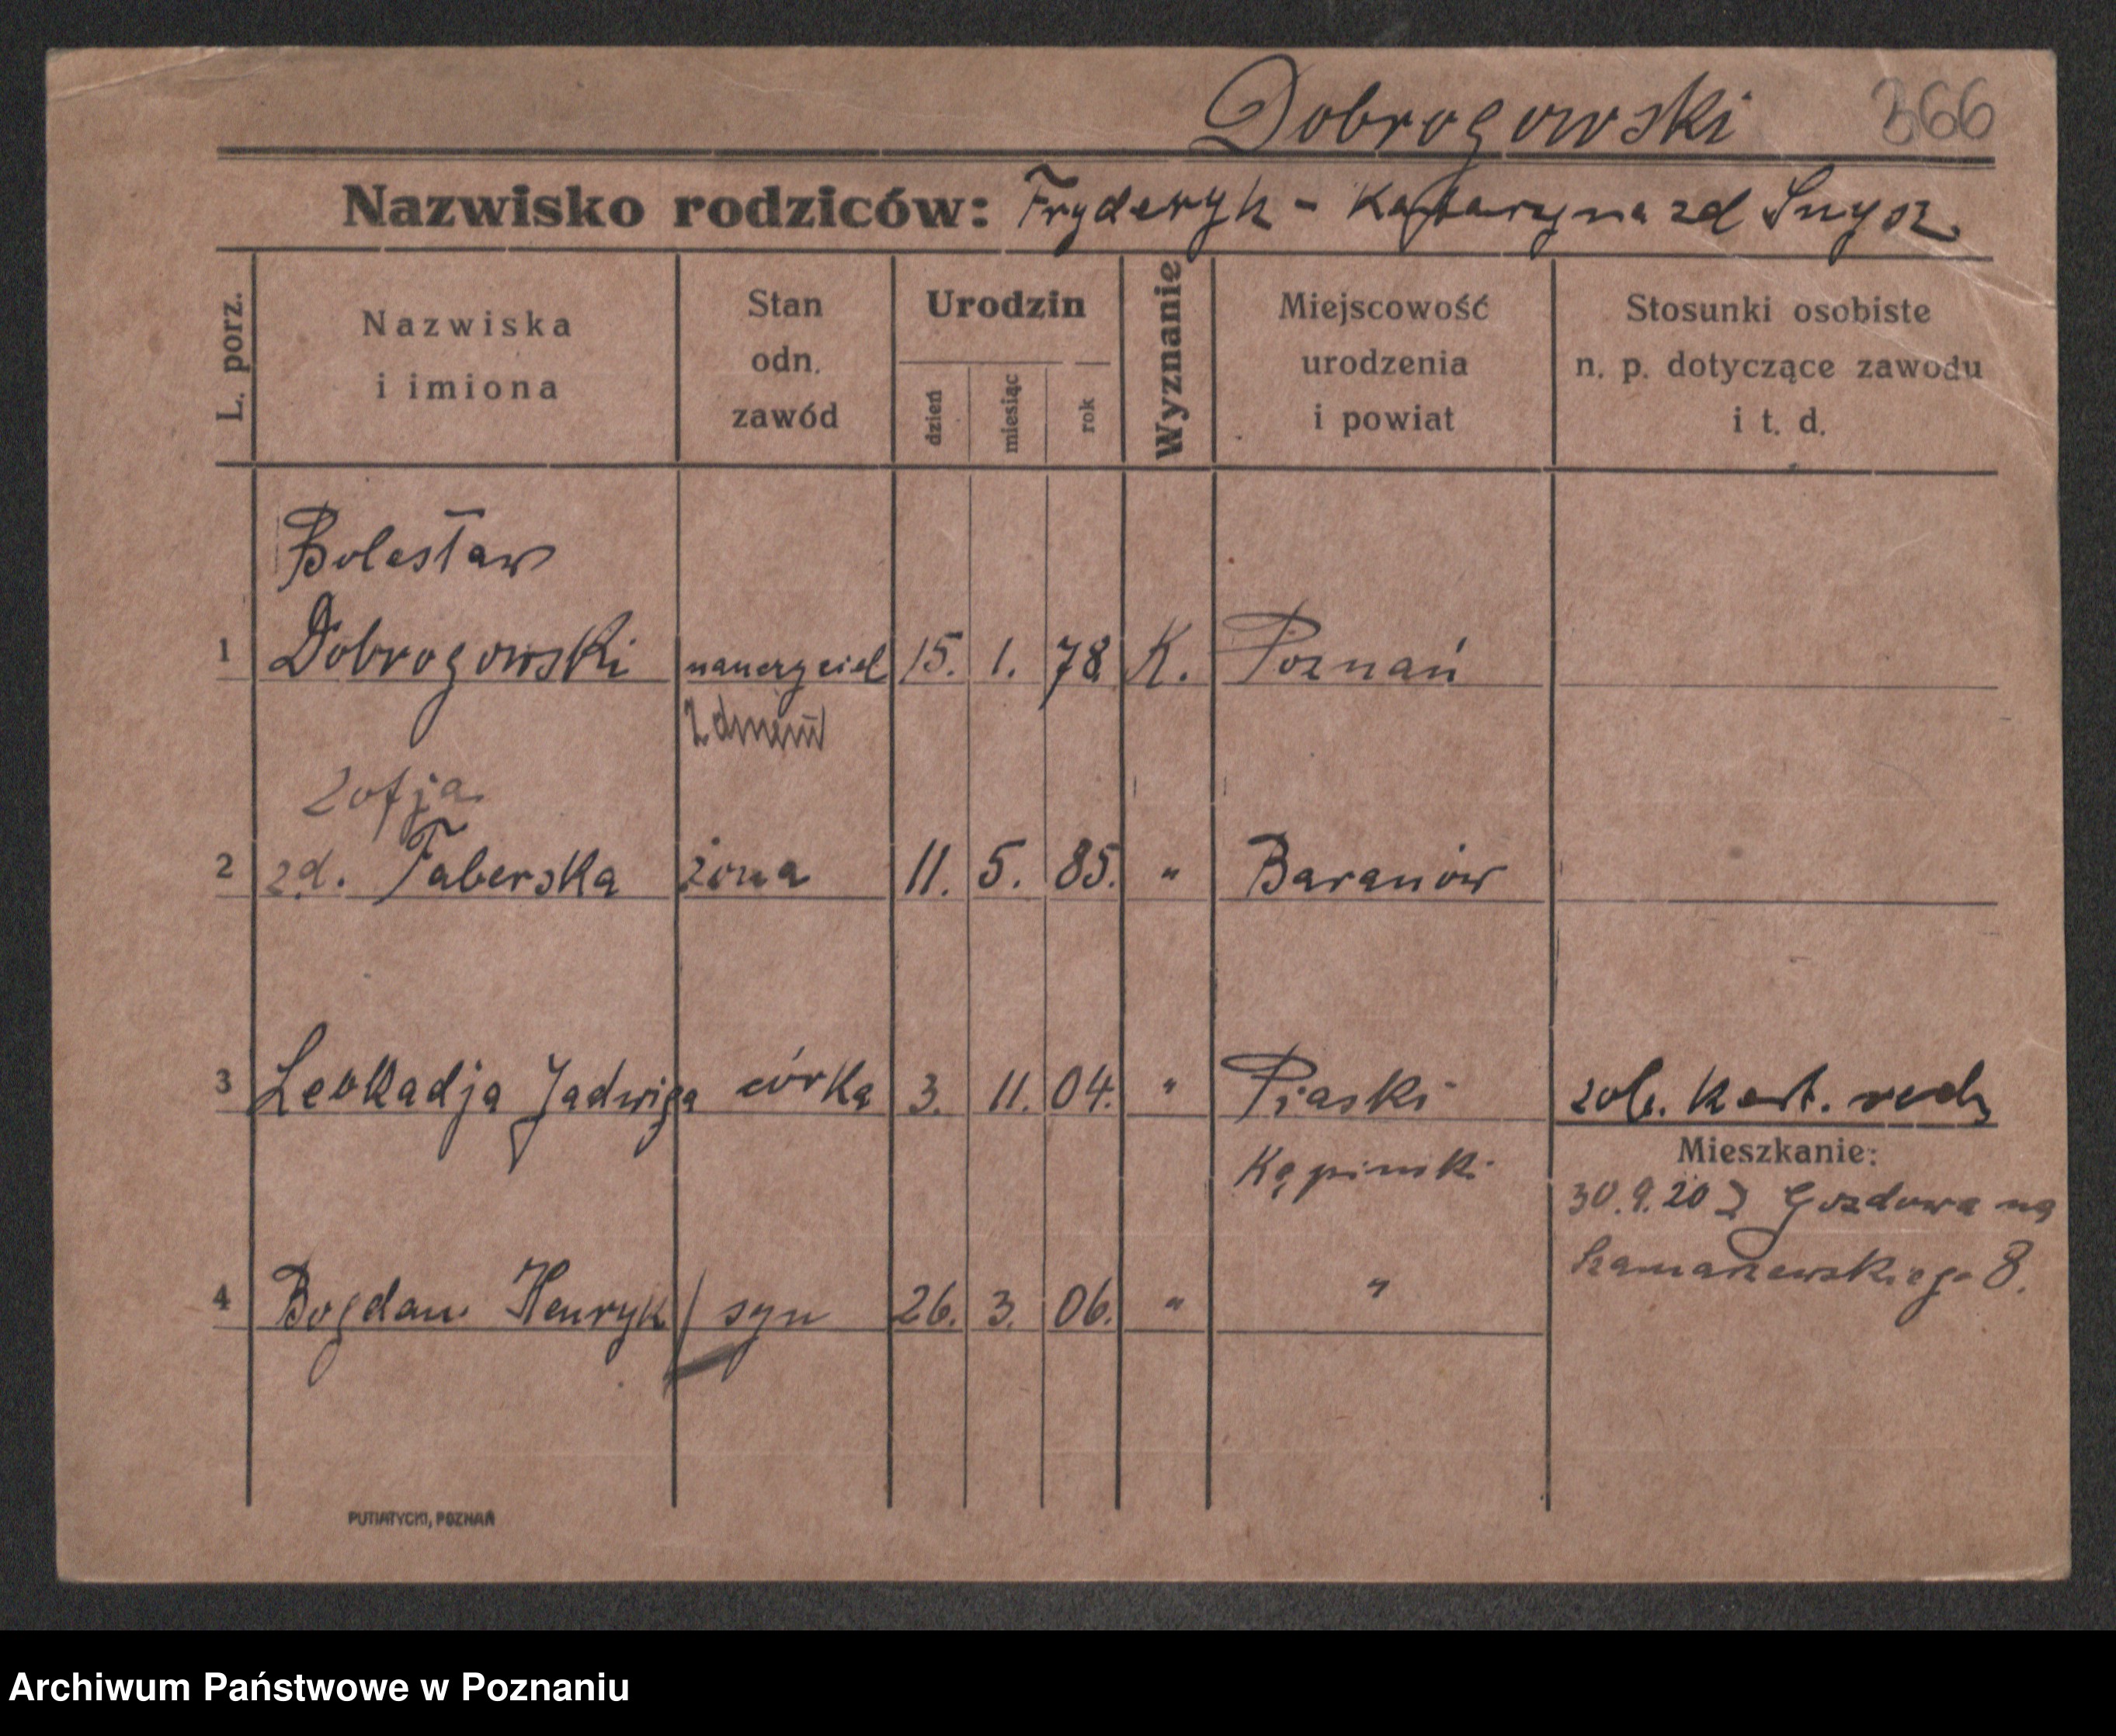 Dobrogowski 366
Nazwisko rodziców: Fryderyk - Katarzyna zd
L. porz.
Nazwiska
i imiona
Stan
odn.
zawód
Urodzin
dzień
miesiąc
rok
Wyznanie
Miejscowość
urodzenia
i powiat
Stosunki osobiste
n. p. dotyczące zawodu
i t. d.
Bolesław
1 Dobrogowski nauczyciel 15. 1. 78 K. Poznań
Zofja
2 zd. Taberska żona 11. 5. 85. " Baranów
3 Leokadja Jadwiga córka 3. 11. 04. " Piaski zob. kart.
Mieszkanie:
Kępiński
30.9.20 Z Gozdowa na
8.
4 Bogdan Henryk syn 26. 3. 06. " "
PUTIATYCKI, POZNAŃ
Archiwum Państwowe w Poznaniu